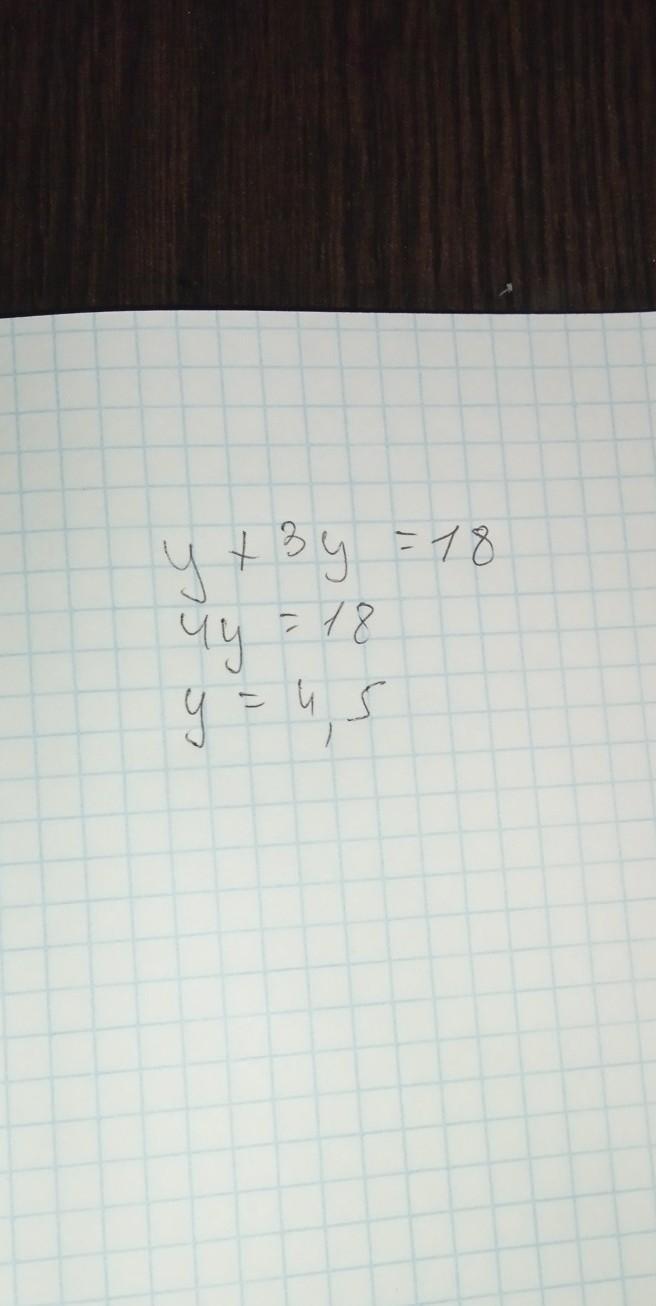 y + 3y = 18
4y = 18
y = 4,5